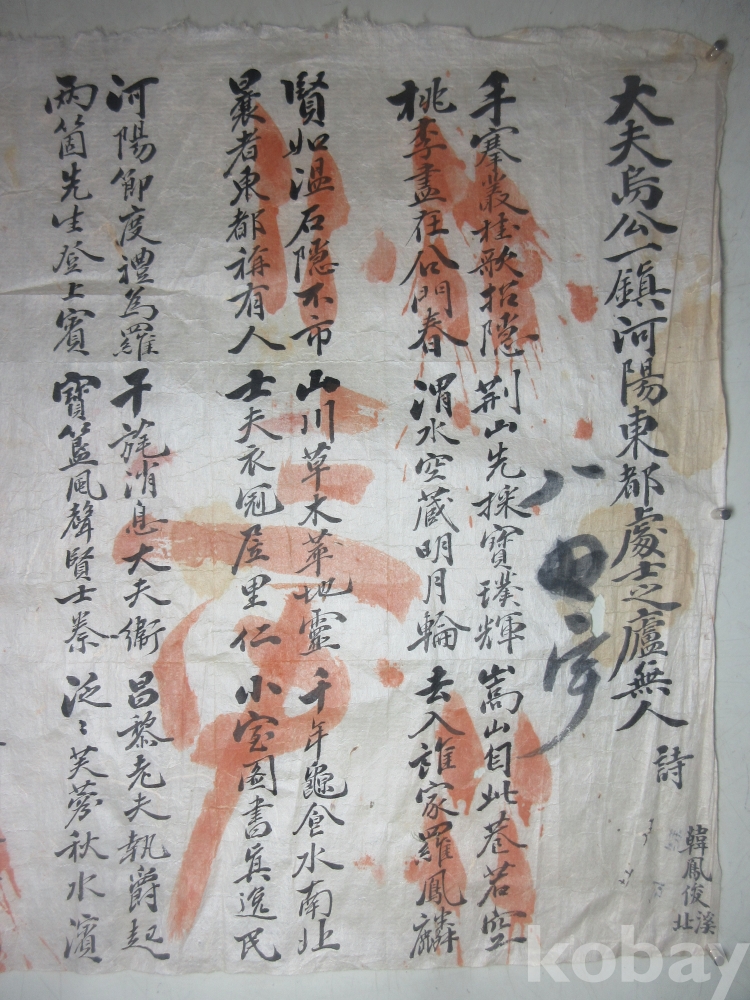 韓鳳俊
溪北
大夫烏公一鎮河陽東都處士之廬無人 詩
八
手搴叢桂歌招隱 荊山先採寶璞輝 嵩山自此巷若空
桃李盡在公門春 渭水空藏明月輪 去入誰家羅鳳麟
賢如溫石隱不市 山川草木華地靈 千年龜食水南北
曩者東都稱有人 士夫衣冠居里仁 小室圖書眞逸民
河陽節度禮爲羅 干旄消息大夫衛 昌黎老夫執爵起
兩箇先生登上賓 寶簋風聲賢士秦 泛〻芙蓉秋水濱
kobay